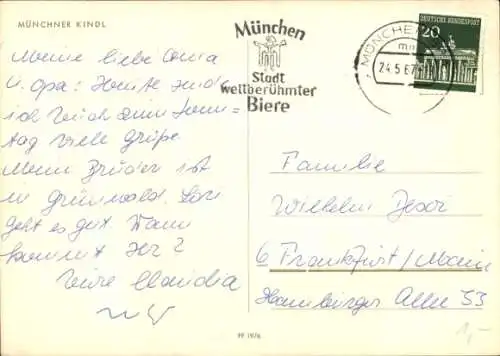 MÜNCHNER KINDL
Meine liebe Oma
u. Opa! Heute sende
ich Euch zum Sonn-
tag viele Grüße
Mein Bruder ist
in Grünwald.
geht es gut. Wann
kommt Ihr?
Eure Claudia
München
Stadt
weltberühmter
Biere
MÜNCHEN
24.5.67
DEUTSCHE BUNDESPOST
20
Familie
Wilhelm
6 Frankfurt/Main
Hamburger Allee 53
1,-
PF 1976